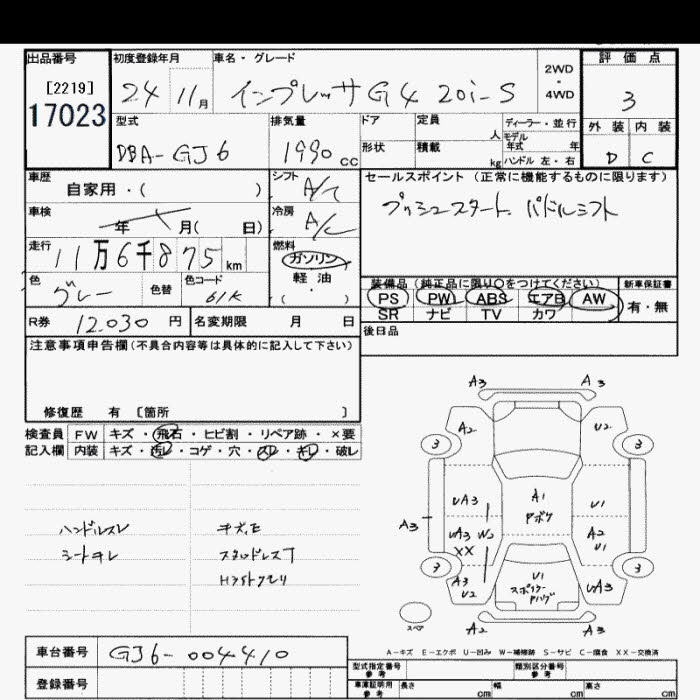 出品番号
[2219]
17023
初度登録年月
24 11月
車名・グレード
インプレッサG4 20i-S
2WD・4WD
評価点
3
外装 内装
D C
型式
DBA-GJ6
排気量
1990 cc
ドア
形状
定員 人
積載 kg
ディーラー・並行
モデル年式 年
ハンドル 左・右
車歴
自家用・( )
シフト
A/T
セールスポイント (正常に機能するものに限ります)
プッシュスタート、パドルシフト
車検
年 月( 日)
冷房
A/C
走行
11万6千875 km
燃料
ガソリン
軽油
( )
色
グレー
色替
色コード
61K
装備品 (純正品に限り○をつけてください)
PS PW ABS エアB AW
SR ナビ TV カワ
新車保証書
有・無
R券 12,030 円
名変期限 月 日
後日品
注意事項申告欄(不具合内容等は具体的に記入して下さい)
修復歴 有 [箇所 ]
検査員記入欄
FW キズ・飛石・ヒビ割・リペア跡・×要
内装 キズ・汚レ・コゲ・穴・スレ・キレ・破レ
ハンドルスレ
シートキレ
スタッドレスT
A3 A3
A2 U2
3 3
UA3 A1 U1
アボケ
A3 UA3 W2 A2
XX U1
3 3
A3 U1 UA3
U2
スペア
A2 A3
A-キズ E-エクボ U-凹み W-補修跡 S-サビ C-腐食 XX-交換済
車台番号
GJ6-004410
登録番号
型式指定番号 参考
類別区分番号 参考
車庫証明用 参考
長さ cm 幅 cm 高さ cm